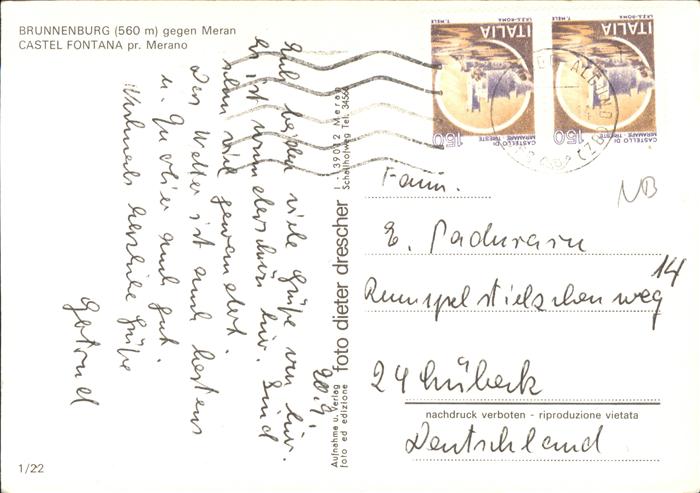 BRUNNENBURG (560 m) gegen Meran
CASTEL FONTANA pr. Merano
20.9.
Euch beiden viele Grüße von hier.
Es ist wunderschön hier. Sind
schon viel gewandert.
Das Wetter ist auch bestens
u. Quartier auch gut.
Nochmals herzliche Grüße
Gertrud
Aufnahme u. Verlag
foto ed edizione
foto dieter drescher
I - 39012 Meran
Schallhofweg Tel. 34564
ITALIA
I.P.Z.S.-ROMA T. MELE
150
CASTELLO DI
MIRAMARE - TRIESTE
ITALIA
I.P.Z.S.-ROMA T. MELE
150
CASTELLO DI
MIRAMARE - TRIESTE
NB
Fam.
E. Paduraru
Rumpelstielzchenweg 14
24 Lübeck
nachdruck verboten - riproduzione vietata
Deutschland
1/22